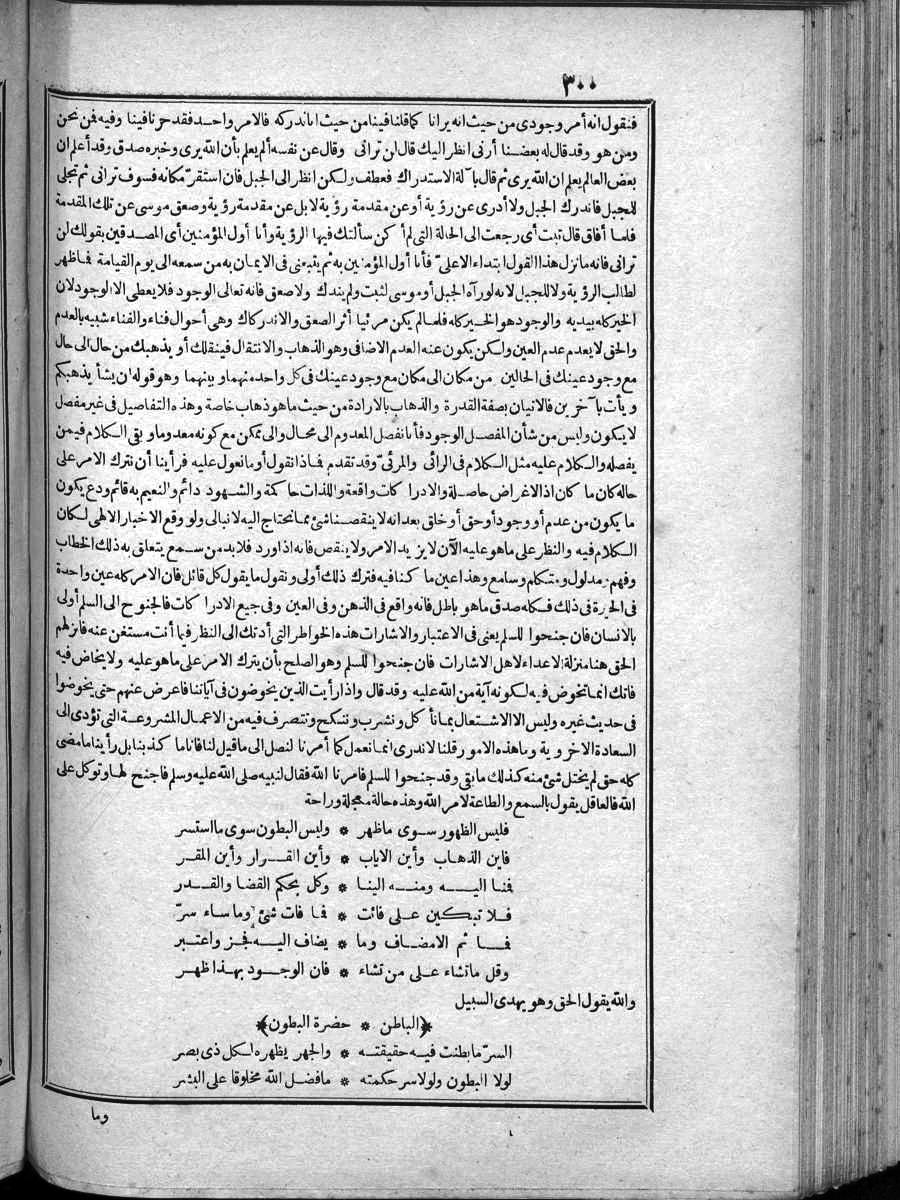 ٣٠٠
فنقول انه أمر وجودى من حيث انه يرانا كما قلنا فينا من حيث اناندركه فالامر واحد فقد حرنا فينا وفيه فمن نحن
ومن هو وقد قال له بعضنا أرنى انظر اليك قال لن ترانى وقال عن نفسه ألم يعلم بأن الله يرى وخبره صدق وقد أعلم ان
بعض العالم يعلم ان الله يرى ثم قال بآلة الاستدراك فعطف ولكن انظر الى الجبل فان استقر مكانه فسوف ترانى ثم تجلى
للجبل فاندرك الجبل ولا أدرى عن رؤية أو عن مقدمة رؤية لا بل عن مقدمة رؤية وصعق موسى عن تلك المقدمة
فلما أفاق قال تبت أى رجعت الى الحالة التى لم أكن سألتك فيها الرؤية وأنا أول المؤمنين أى المصدقين بقولك لن
ترانى فانه ما نزل هذا القول ابتداء الا علىّ فأنا أول المؤمنين به ثم يتبعنى فى الايمان به من سمعه الى يوم القيامة فما ظهر
لطالب الرؤية ولا للجبل لانه لو رآه الجبل أو موسى لثبت ولم يندك ولا صعق فانه تعالى الوجود فلا يعطى الا الوجود لان
الخير كله بيديه والوجود هو الخير كله فلما لم يكن مرئيا أثر الصعق والاندكاك وهى أحوال فناء والفناء شبيه بالعدم
والحق لا يعدم عدم العين ولكن يكون عنه العدم الاضافى وهو الذهاب والانتقال فينقلك أو يذهبك من حال الى حال
مع وجود عينك فى الحالين من مكان الى مكان مع وجود عينك فى كل واحد منهما وبينهما وهو قوله ان يشأ يذهبكم
ويأت بآخرين فالاتيان بصفة القدرة والذهاب بالارادة من حيث ما هو ذهاب خاصة وهذه التفاصيل فى غير مفصل
لا يكون وليس من شأن المفصل الوجود فانا نفصل المعدوم الى محال والى ممكن مع كونه معدوما وبقى الكلام فيمن
يفصله والكلام عليه مثل الكلام فى الرائى والمرئىّ وقد تقدم فماذا نقول أو ما نعول عليه فرأينا أن نترك الامر على
حاله كان ما كان اذ الاغراض حاصلة والادراكات واقعة واللذات حاكمة والشهود دائم والنعيم به قائم ودع يكون
ما يكون من عدم أو وجود أو حق أو خلق بعد انه لا ينقصنا شئ مما نحتاج اليه لا نبالى ولو وقع الاخبار الالهى لكان
الكلام فيه والنظر على ما هو عليه الآن لا يزيد الامر ولا ينقص فانه اذا ورد فلا بد من سمع يتعلق به ذلك الخطاب
وفهم ومدلول ومتكلم وسامع وهذا عين ما كنا فيه فترك ذلك أولى ونقول ما يقول كل قائل فان الامر كله عين واحدة
فى الحيرة فى ذلك فكله صدق ما هو باطل فانه واقع فى الذهن وفى العين وفى جميع الادراكات فالجنوح الى السلم أولى
بالانسان فان جنحوا للسلم يعنى فى الاعتبار والاشارات هذه الخواطر التى أدتك الى النظر فيما أنت مستغن عنه فانزلهم
الحق هنا منزلة الاعداء لاهل الاشارات فان جنحوا للسلم وهو الصلح بأن يترك الامر على ما هو عليه ولا يخاض فيه
فانك انما تخوض فيه لكونه آية من الله عليه وقد قال واذا رأيت الذين يخوضون فى آياتنا فاعرض عنهم حتى يخوضوا
فى حديث غيره وليس الا الاشتغال بما نأكل ونشرب وننكح ونتصرف فيه من الاعمال المشروعة التى تؤدى الى
السعادة الاخروية وما هذه الامور قلنا لا ندرى انما نعمل كما أمرنا لنصل الى ما قيل لنا فانا ما كذبنا بل رأينا ما مضى
كله حق لم يختل شئ منه كذلك ما بقى وقد جنحوا للسلم فامرنا الله فقال لنبيه صلى الله عليه وسلم فاجنح لها وتوكل على
الله فالعاقل يقول بالسمع والطاعة لامر الله وهذه حالة معجلة وراحة
فليس الظهور سوى ما ظهر * وليس البطون سوى ما استسر
فاين الذهاب وأين الاياب * وأين القرار وأين المقر
فمنا اليه ومنه الينا * وكل بحكم القضا والقدر
فلا تبكين على فائت * فما فات شئ وما ساء سرّ
فما ثم الا مضاف وما * يضاف اليه فجز واعتبر
وقل ما تشاء على من تشاء * فان الوجود بهذا ظهر
والله يقول الحق وهو يهدى السبيل
﴿الباطن * حضرة البطون﴾
السرّ ما بطنت فيه حقيقته * والجهر يظهره لكل ذى بصر
لولا البطون ولولا سر حكمته * ما فضل الله مخلوقا على البشر
وما